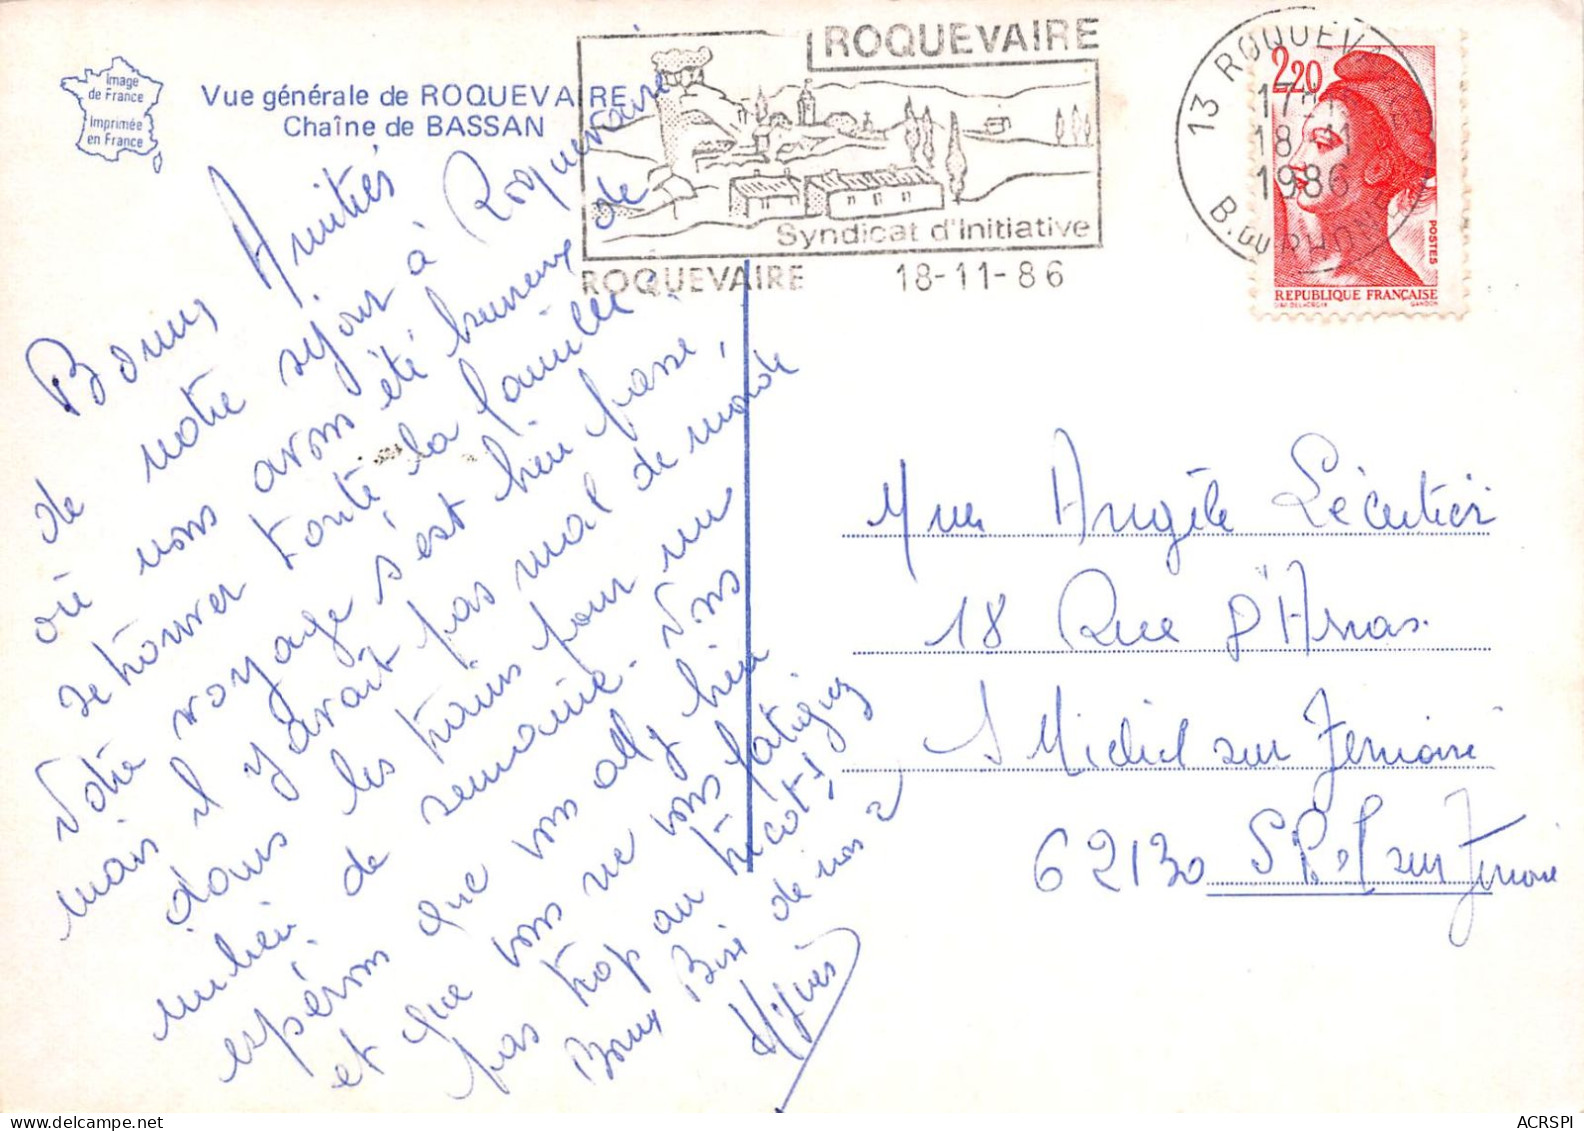 Image
de France
Imprimée
en France
Vue générale de ROQUEVAIRE
Chaîne de BASSAN
ROQUEVAIRE
Syndicat d'Initiative
ROQUEVAIRE 18-11-86
13 ROQUEVAIRE
18-11
1986
B. DU RHONE
2,20
POSTES
REPUBLIQUE FRANÇAISE
GANDON
Bonnes Amitiés
de notre séjour à Roquevaire
où nous avons été heureux de
retrouver toute la famille.
Notre voyage s'est bien passé,
mais il y avait pas mal de monde
dans les trains pour un
milieu de semaine. Nous
espérons que vous allez bien
et que vous ne vous fatiguez
pas trop au tricot!
Bonne Bise de nous 2
Agnès
Mme Angèle Lécutier
18 Rue d'Arras
St Michel sur Ternoise
62130 St Pol sur Ternoise
ACRSPI